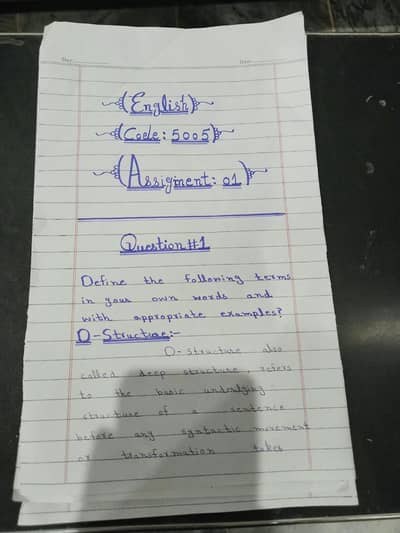 English
Code: 5005
Assigment: 01
Question #1
Define the following terms
in your own words and
with appropriate examples?
D-Structrae:-
D-structure also
called deep structure, refers
to the basic undrlying
structure of a sentence
before any syntactic movement
or transformation takes